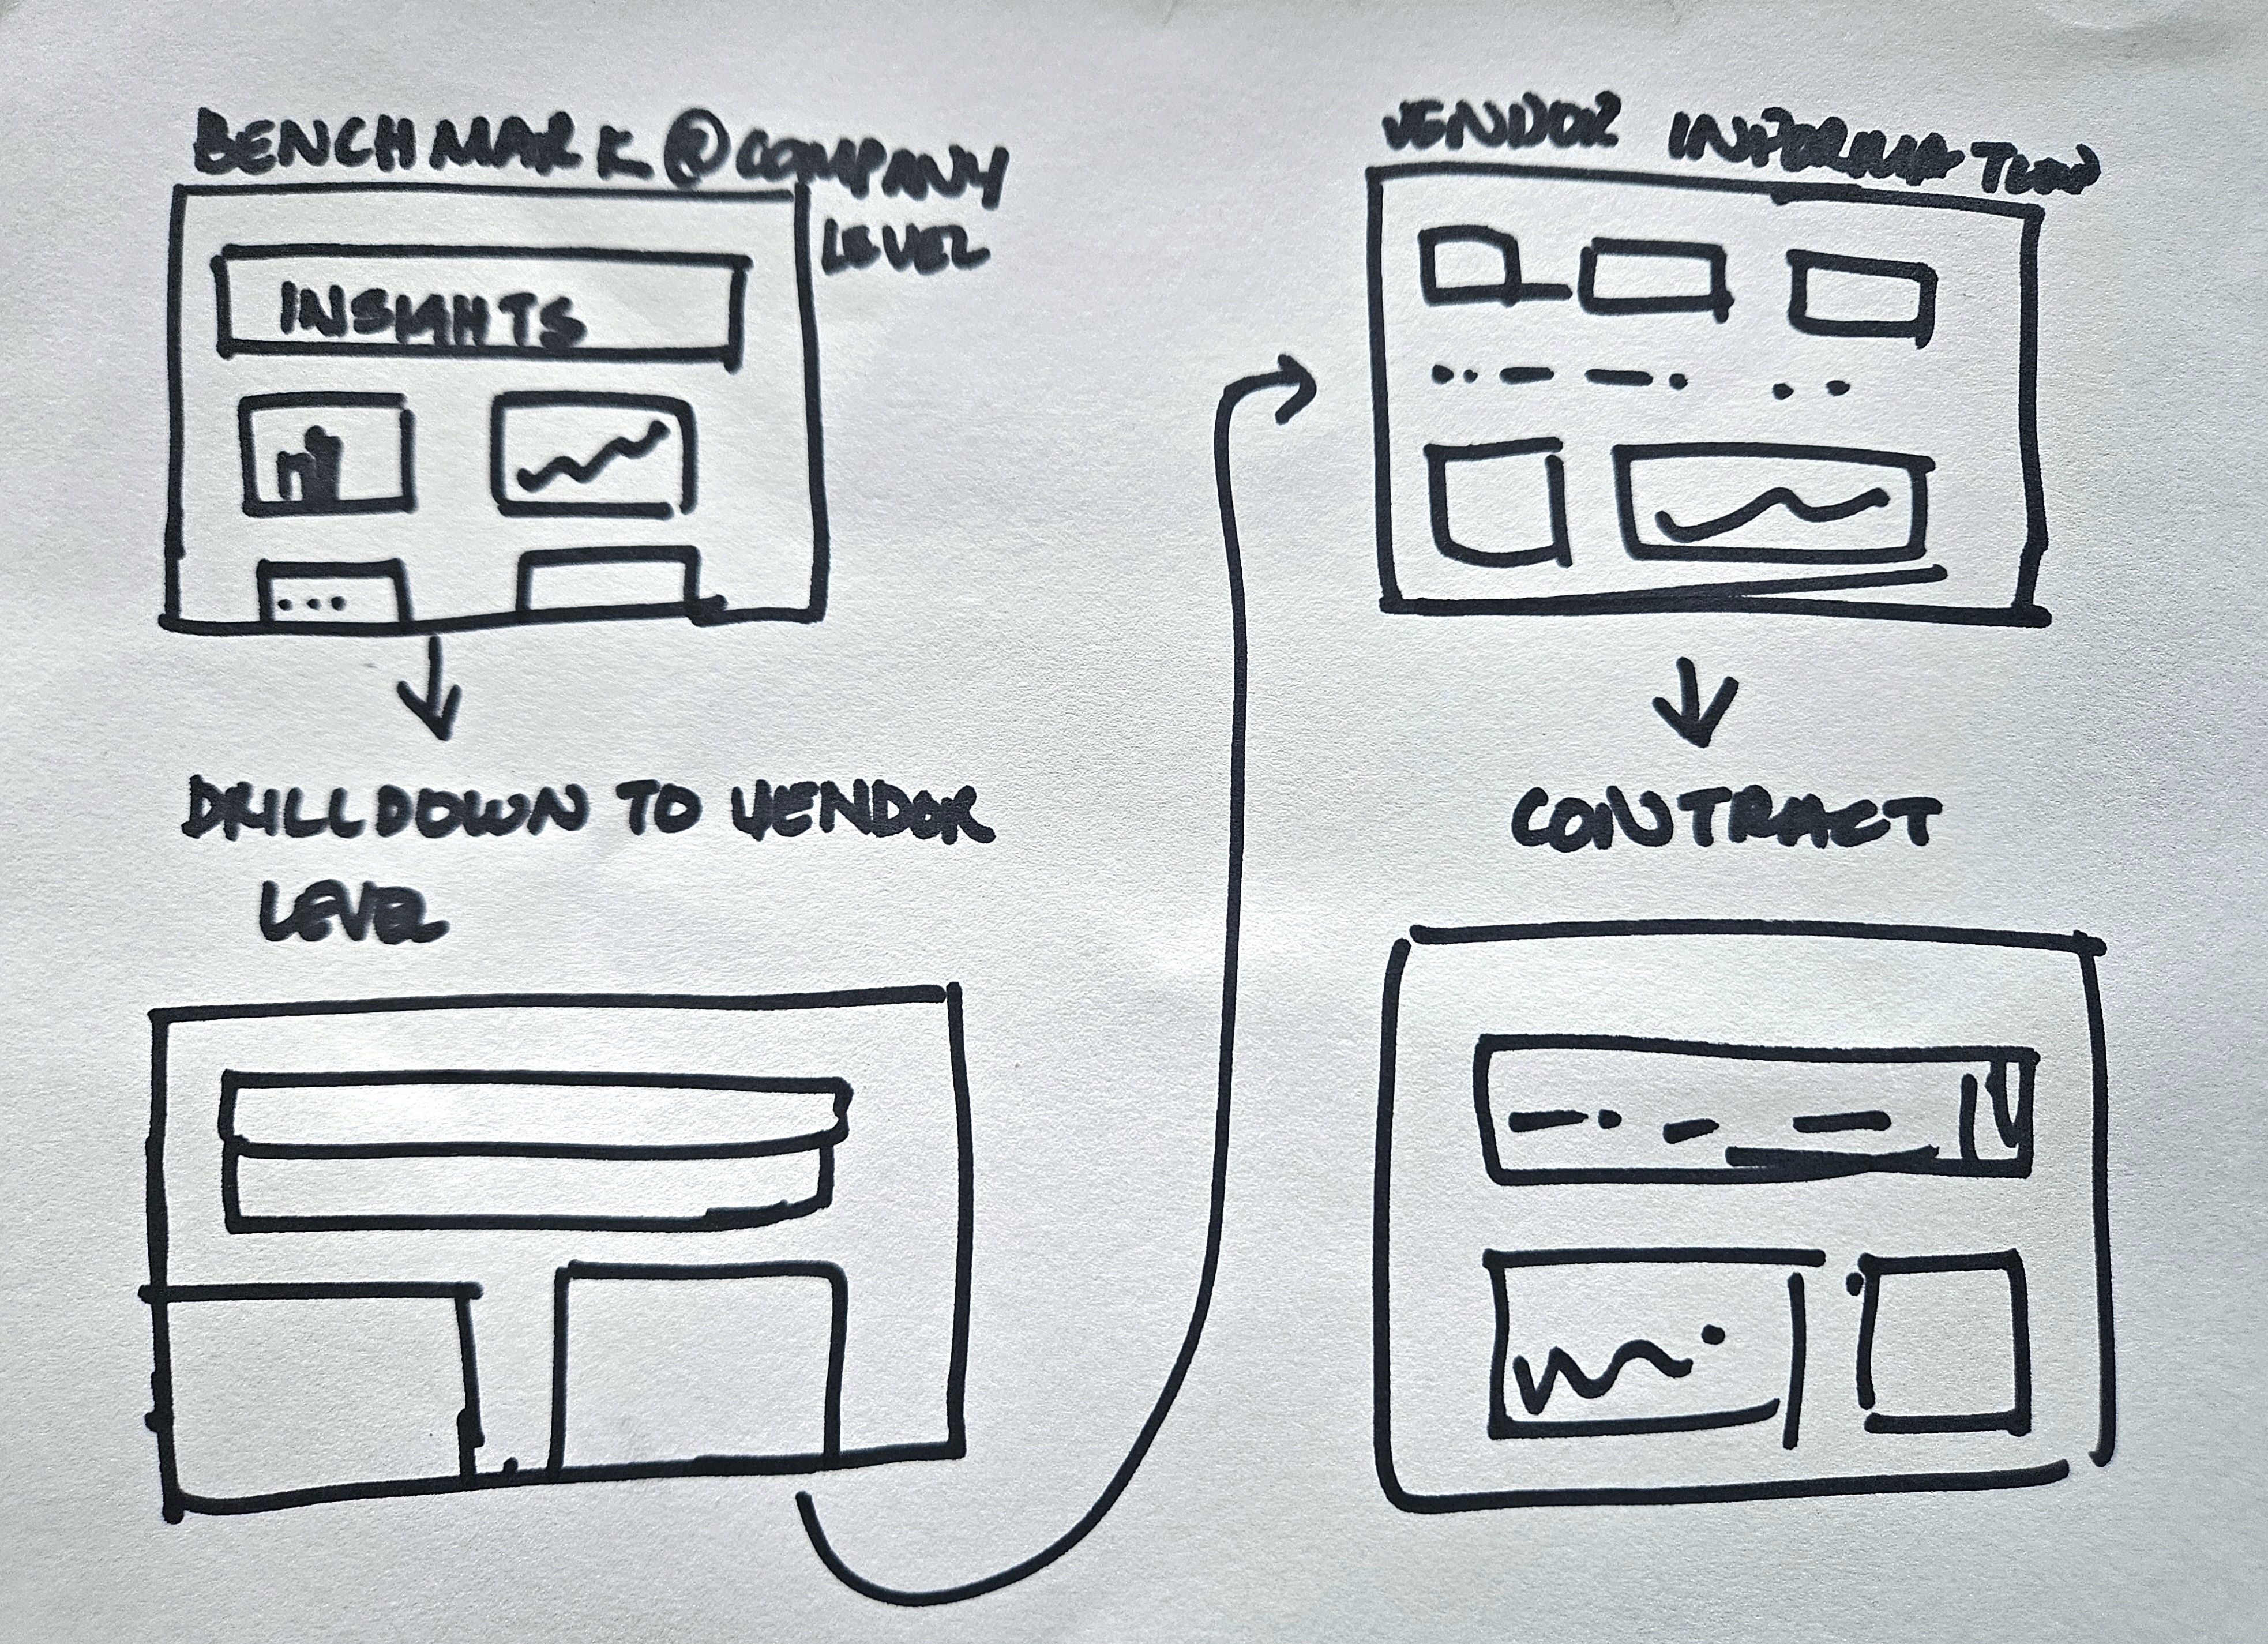 BENCHMARK @ COMPANY
LEVEL
INSIGHTS
DRILLDOWN TO VENDOR
LEVEL
VENDOR INFORMATION
CONTRACT